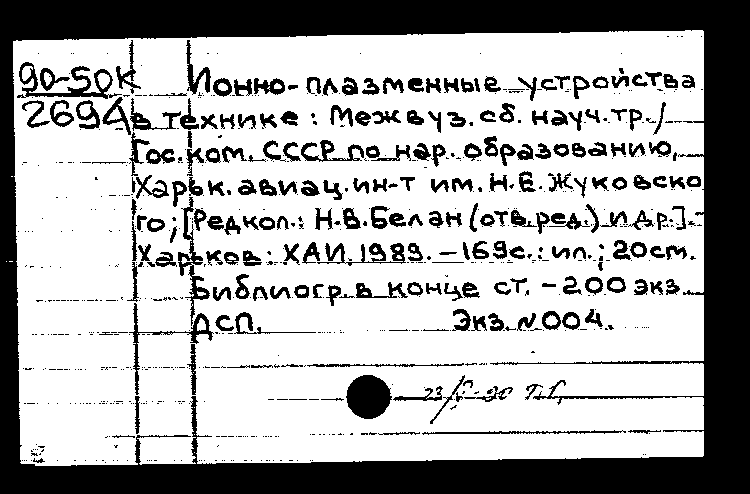 90-50К Ионно-плазменные устройства
2694 в технике : Межвуз. сб. науч. тр. /
Гос. ком. СССР по нар. образованию,
Харьк. авиац. ин-т им. Н.Е. Жуковско
го ; [Редкол.: Н.В. Белан (отв. ред.) и др.]. -
Харьков : ХАИ, 1989. - 169с. : ил. ; 20см.
Библиогр. в конце ст. - 200 экз.
ДСП. Экз. №004.